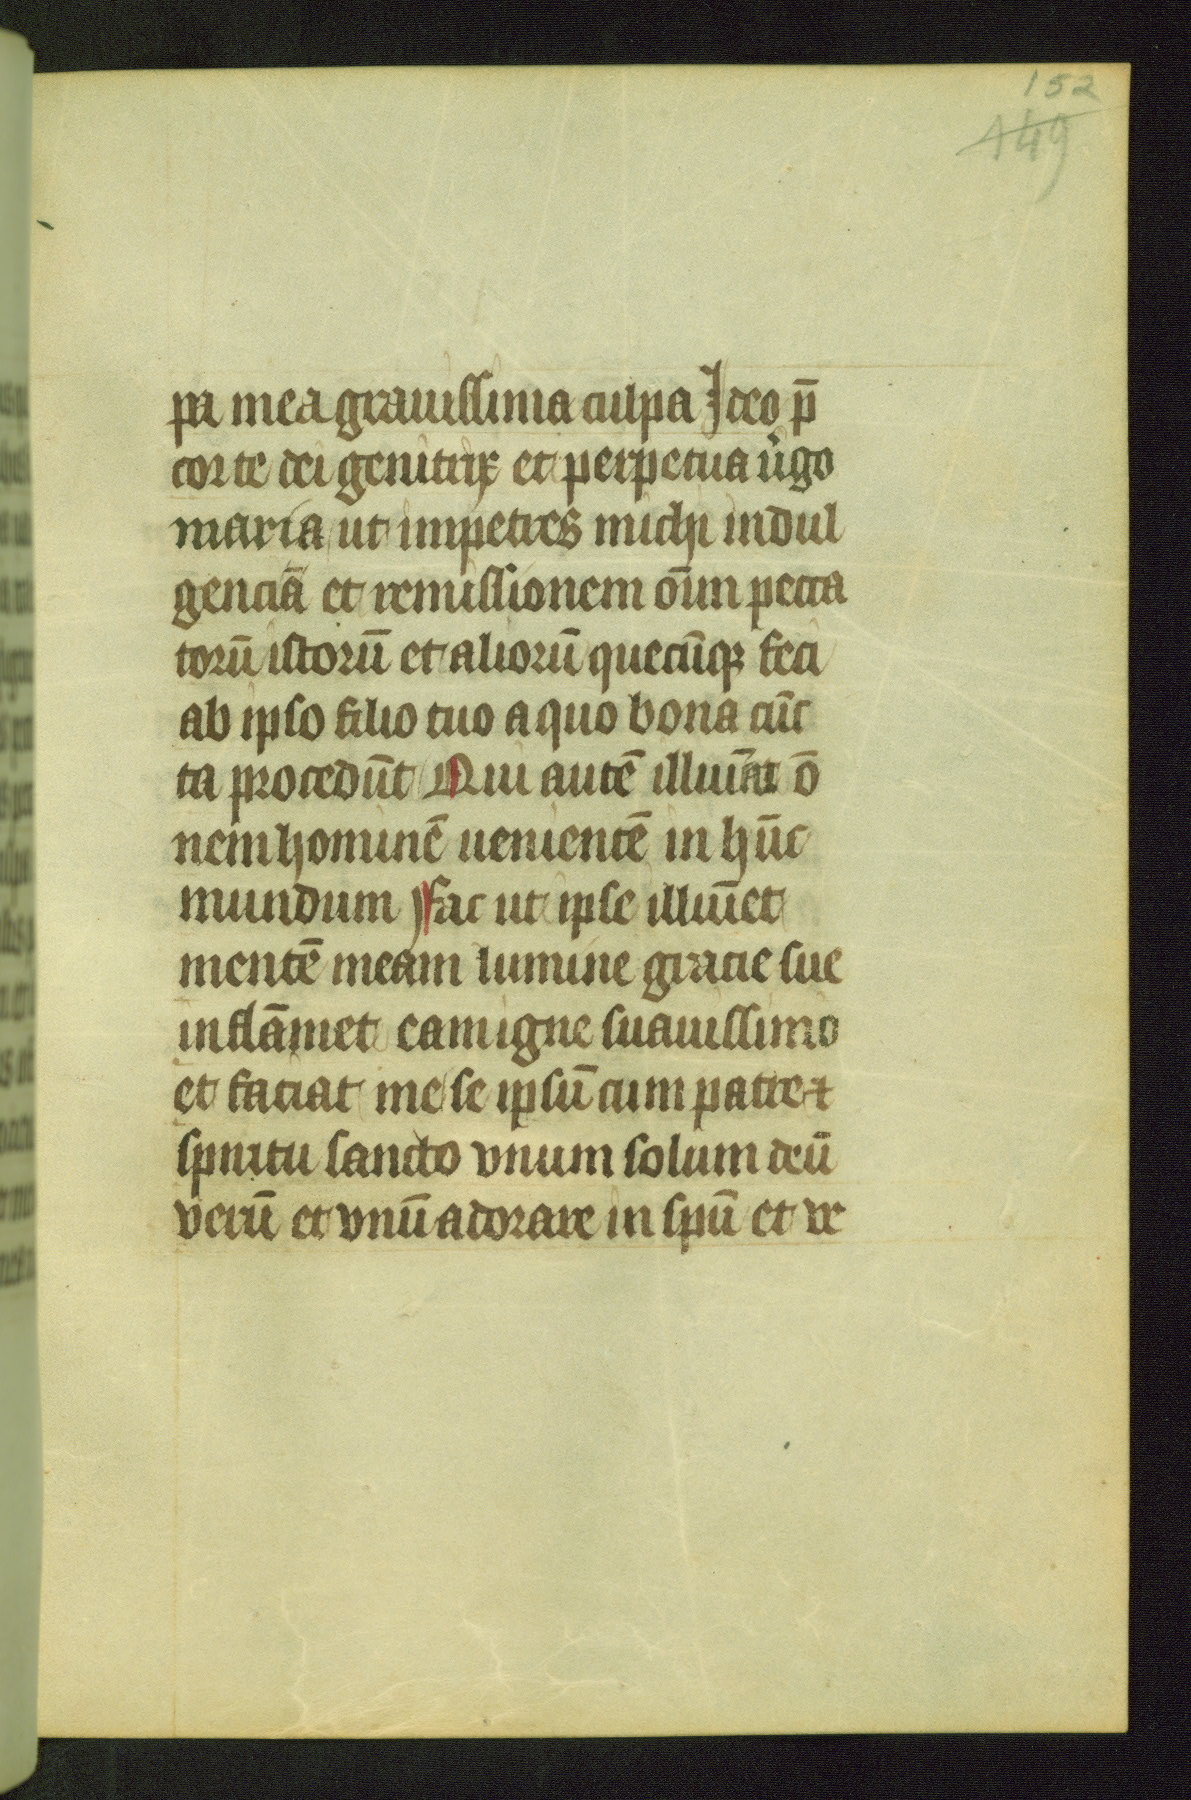 152
149
pa mea grauissima culpa Ideo p̄
cor te dei genitrix et perpetua u̾go
maria ut impetres michi indul
genciā et remissionem oīm pecca
torū istorū et aliorū quecūqꝫ feci
ab ipso filio tuo a quo bona cūc
ta procedūt Qui autē illuīat ō
nem hominē uenientē in hūc
mundum ffac ut ipse illuīet
mentē meam lumine gracie sue
inflāmet eam igne suauissimo
et faciat me se ipsū cum patre ⁊
spiritu sancto vnum solum deū
verū et vnū adorare in spū et ve